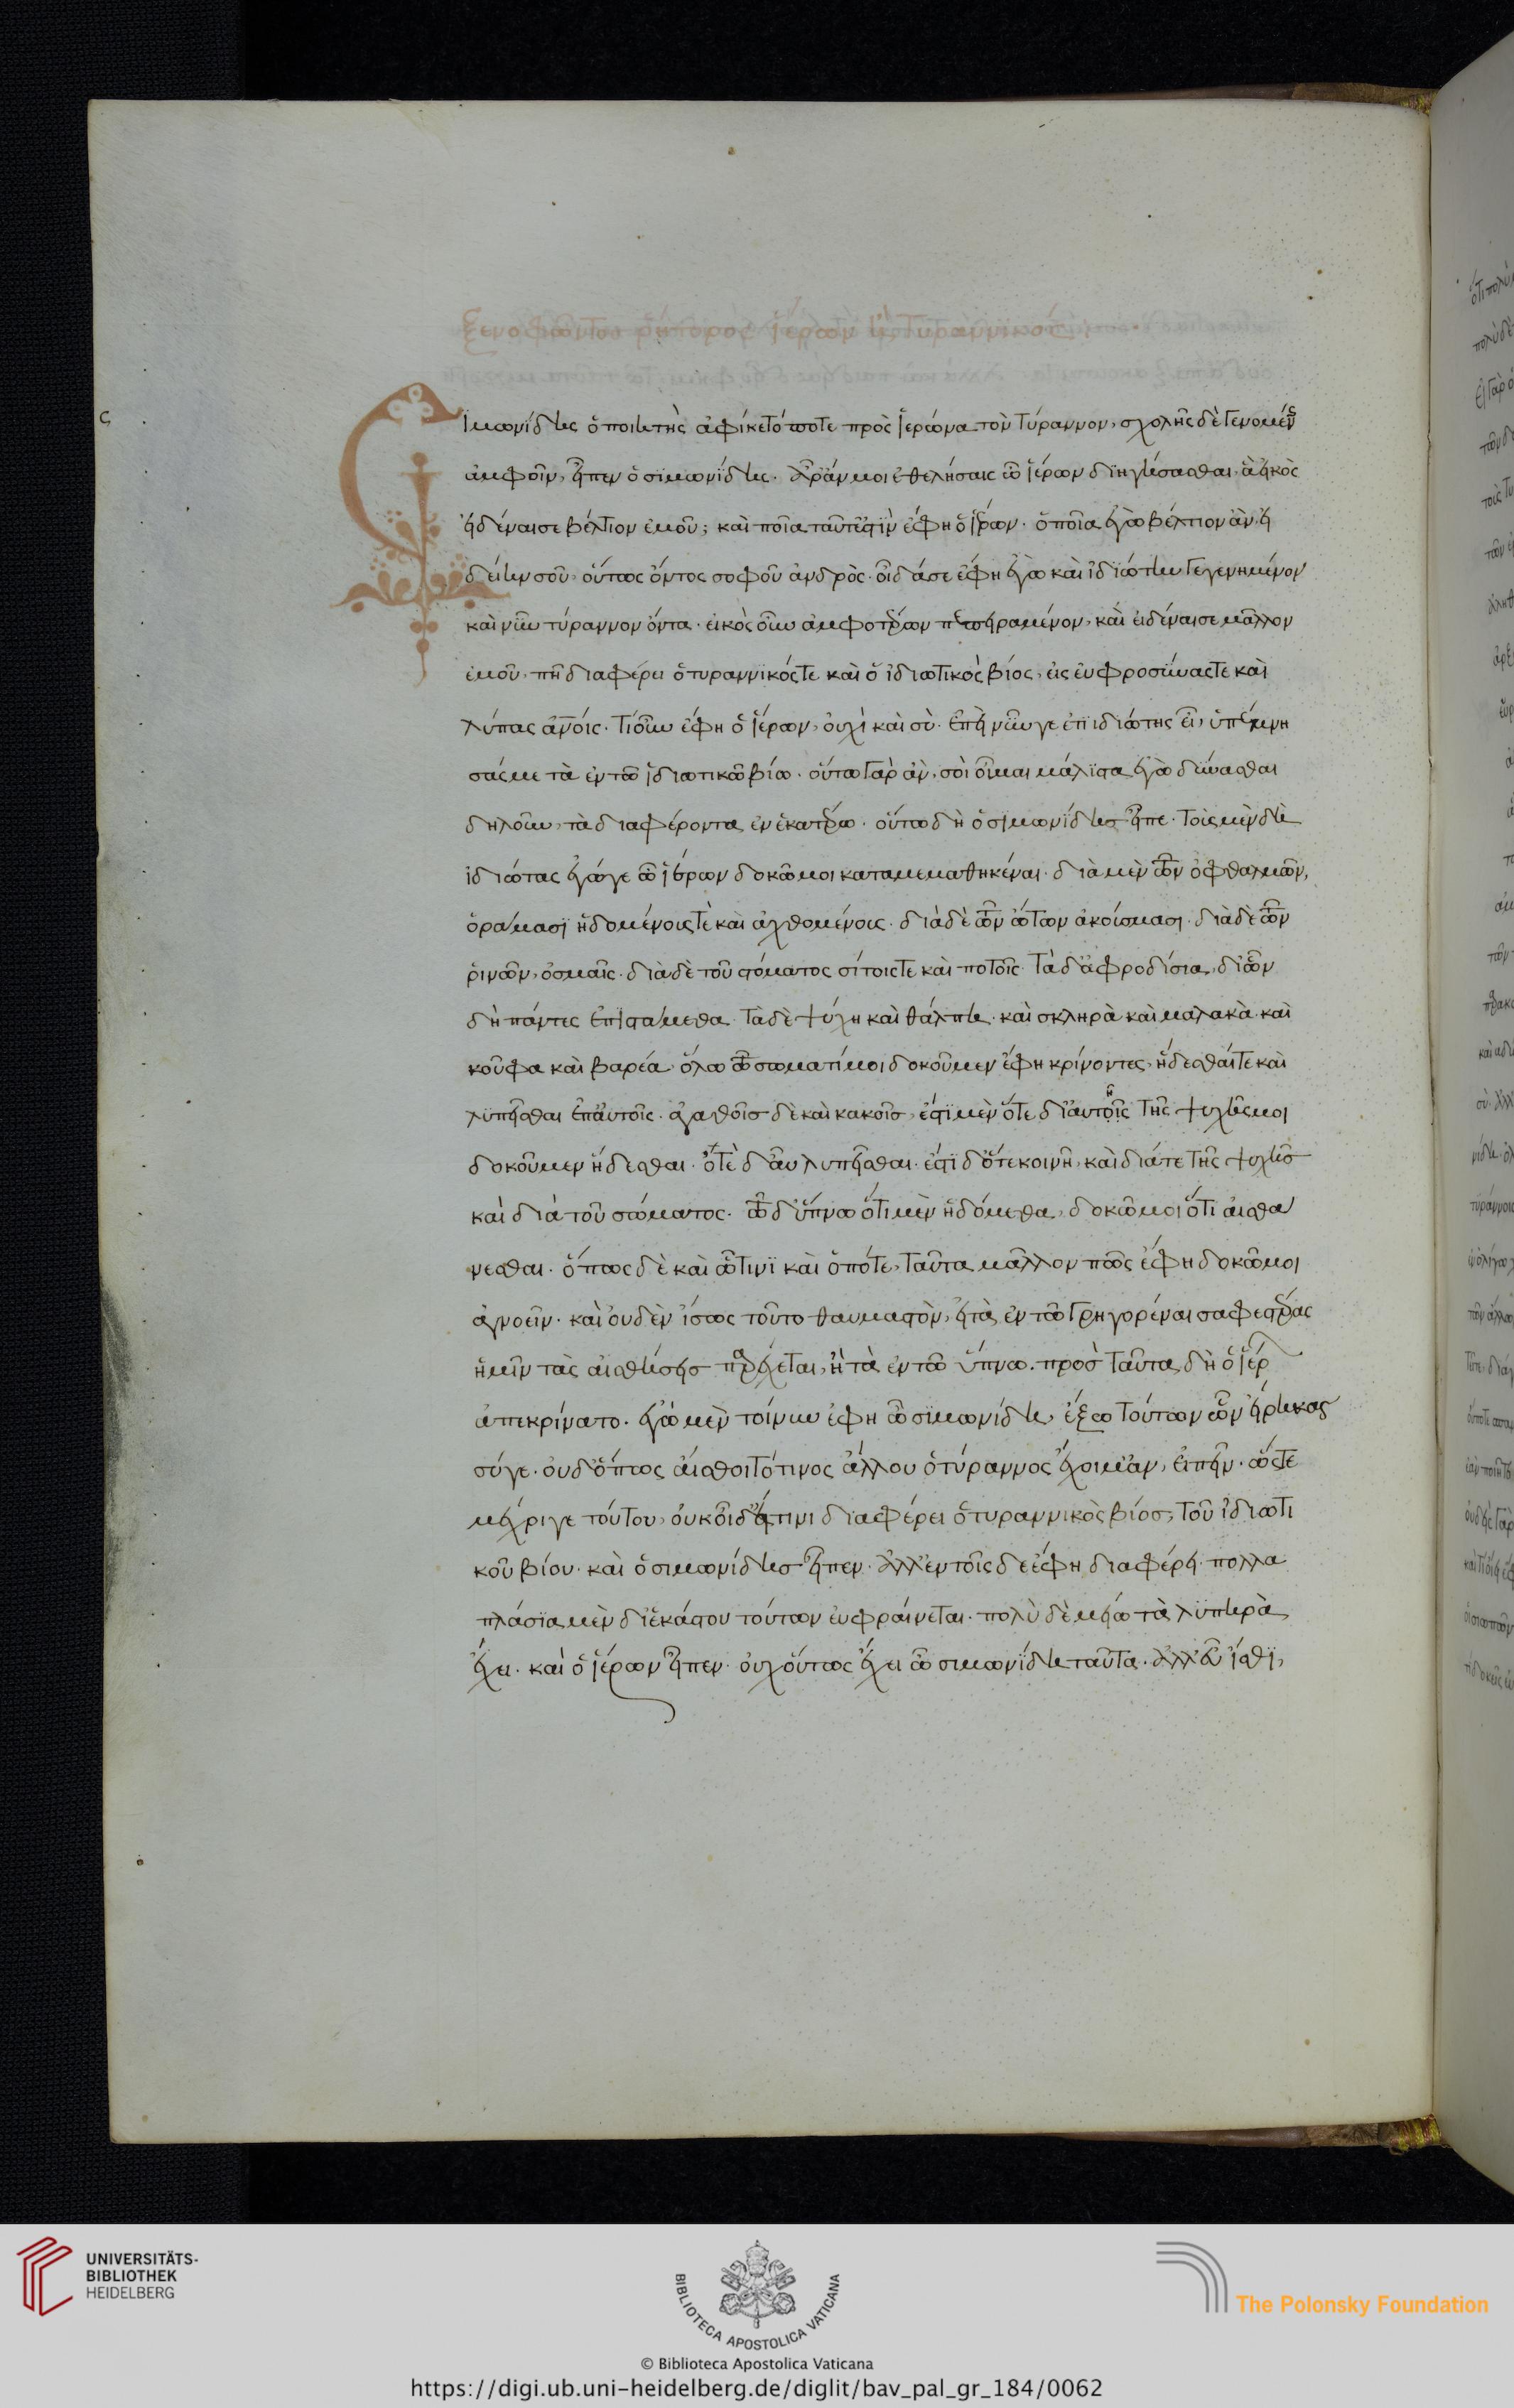 ξενοφῶντος ῥήτορος ἱέρων ἢ τυραννικός:
Σιμωνίδης ὁ ποιητὴς ἀφίκετό ποτε πρὸς ἱέρωνα τὸν τύραννον, σχολῆς δὲ γενομένης
ἀμφοῖν, εἶπεν ὁ σιμωνίδης. ἆρ' ἄν μοι ἐθελήσαις ὦ ἱέρων διηγήσασθαι, ἃ εἰκὸς
εἰδέναι σε βέλτιον ἐμοῦ; καὶ ποῖα ταῦτ' ἐστὶν ἔφη ὁ ἱέρων. ὁποῖα ἐγὼ βέλτιον ἂν εἰ
δείην σοῦ, οὕτως ὄντος σοφοῦ ἀνδρὸς. οἶδά σε ἔφη ἐγὼ καὶ ἰδιώτην γεγενημένον
καὶ νῦν τύραννον ὄντα. εἰκὸς οὖν ἀμφοτέρων πεπειραμένον, καὶ εἰδέναι σε μᾶλλον
ἐμοῦ, πῆ διαφέρει ὁ τυραννικός τε καὶ ὁ ἰδιωτικὸς βίος, εἰς εὐφροσύνας τε καὶ
λύπας ἀνοις. τί οὖν ἔφη ὁ ἱέρων, οὐχὶ καὶ σὺ. ἐπεὶ νῦν γε ἔτι ἰδιώτης εἶ, ὑπέμνη
σάς με τὰ ἐν τῶ ἰδιωτικῶ βίω. οὕτω γὰρ ἄν, σοὶ οἶμαι μάλιστα ἐγὼ δύνασθαι
δηλοῦν, τὰ διαφέροντα ἐν ἑκατέρω. οὕτω δὴ ὁ σιμωνίδης εἶπε. τοὺς μὲν δὴ
ἰδιώτας ἔγωγε ὦ ἱέρων δοκῶ μοι καταμεμαθηκέναι. διὰ μὲν τῶν ὀφθαλμῶν,
ὁράμασι ἡδομένους τὲ καὶ ἀχθομένους. διὰ δὲ τῶν ὤτων ἀκούσμασι. διὰ δὲ τῶν
ῥινῶν, ὀσμαῖς. διὰ δὲ τοῦ στόματος σίτοις τε καὶ ποτοῖς. τὰ δ' ἀφροδίσια, δι' ὧν
δὴ πάντες ἐπιστάμεθα. τὰ δὲ ψύχη καὶ θάλπη. καὶ σκληρὰ καὶ μαλακὰ. καὶ
κοῦφα καὶ βαρέα. ὅλω τῶ σώματί μοι δοκοῦμεν ἔφη κρίνοντες, ἥδεσθαί τε καὶ
λυπεῖσθαι ἐπ' αὐτοῖς. ἀγαθοῖς δὲ καὶ κακοῖς, ἔστι μὲν ὅτε δι' αὐτοῖς τῆς ψυχῆς μοι
δοκοῦμεν ἥδεσθαι. ὁτὲ δ' αὖ λυπεῖσθαι. ἔστι δ' ὅτε κοινῆ, καὶ διά τε τῆς ψυχῆς
καὶ διὰ τοῦ σώματος. τῶ δ' ὕπνω ὅτι μὲν ἡδόμεθα, δοκῶ μοι ὅτι αἰσθά
νεσθαι. ὅπως δὲ καὶ ὧτινι καὶ ὁπότε, ταῦτα μᾶλλον πῶς ἔφη δοκῶ μοι
ἀγνοεῖν. καὶ οὐδὲν ἴσως τοῦτο θαυμαστὸν, εἰ τὰ ἐν τῶ ἐγρηγορέναι σαφεστέρας
ἡμῖν τὰς αἰσθήσεις παρέχεται, ἢ τὰ ἐν τῶ ὕπνω. πρὸς ταῦτα δὴ ὁ ἱέρ
ἀπεκρίνατο. ἐγὼ μὲν τοίνυν ἔφη ὦ σιμωνίδη, ἔξω τούτων ὧν εἴρηκας
σύ γε. οὐδ' ὅπως αἴσθοιτό τινος ἄλλου ὁ τύραννος ἔχοιμ' ἂν, εἰπεῖν. ὥστε
μέχρι γε τούτου, οὐκ οἶδ' εἴ τινι διαφέρει ὁ τυραννικὸς βίος, τοῦ ἰδιωτι
κοῦ βίου. καὶ ὁ σιμωνίδης εἶπεν. ἀλλ' ἐν τοῖς δε ἔφη διαφέρει. πολλα
πλάσια μὲν δι' ἑκάστου τούτων εὐφραίνεται. πολὺ δὲ μείω τὰ λυπηρὰ
ἔχει. καὶ ὁ ἱέρων εἶπεν. οὐχ οὕτως ἔχει ὦ σιμωνίδη ταῦτα. ἀλλ' εὖ ἴσθι,
UNIVERSITÄTS-
BIBLIOTHEK
HEIDELBERG
BIBLIOTECA APOSTOLICA VATICANA
The Polonsky Foundation
© Biblioteca Apostolica Vaticana
https://digi.ub.uni-heidelberg.de/diglit/bav_pal_gr_184/0062